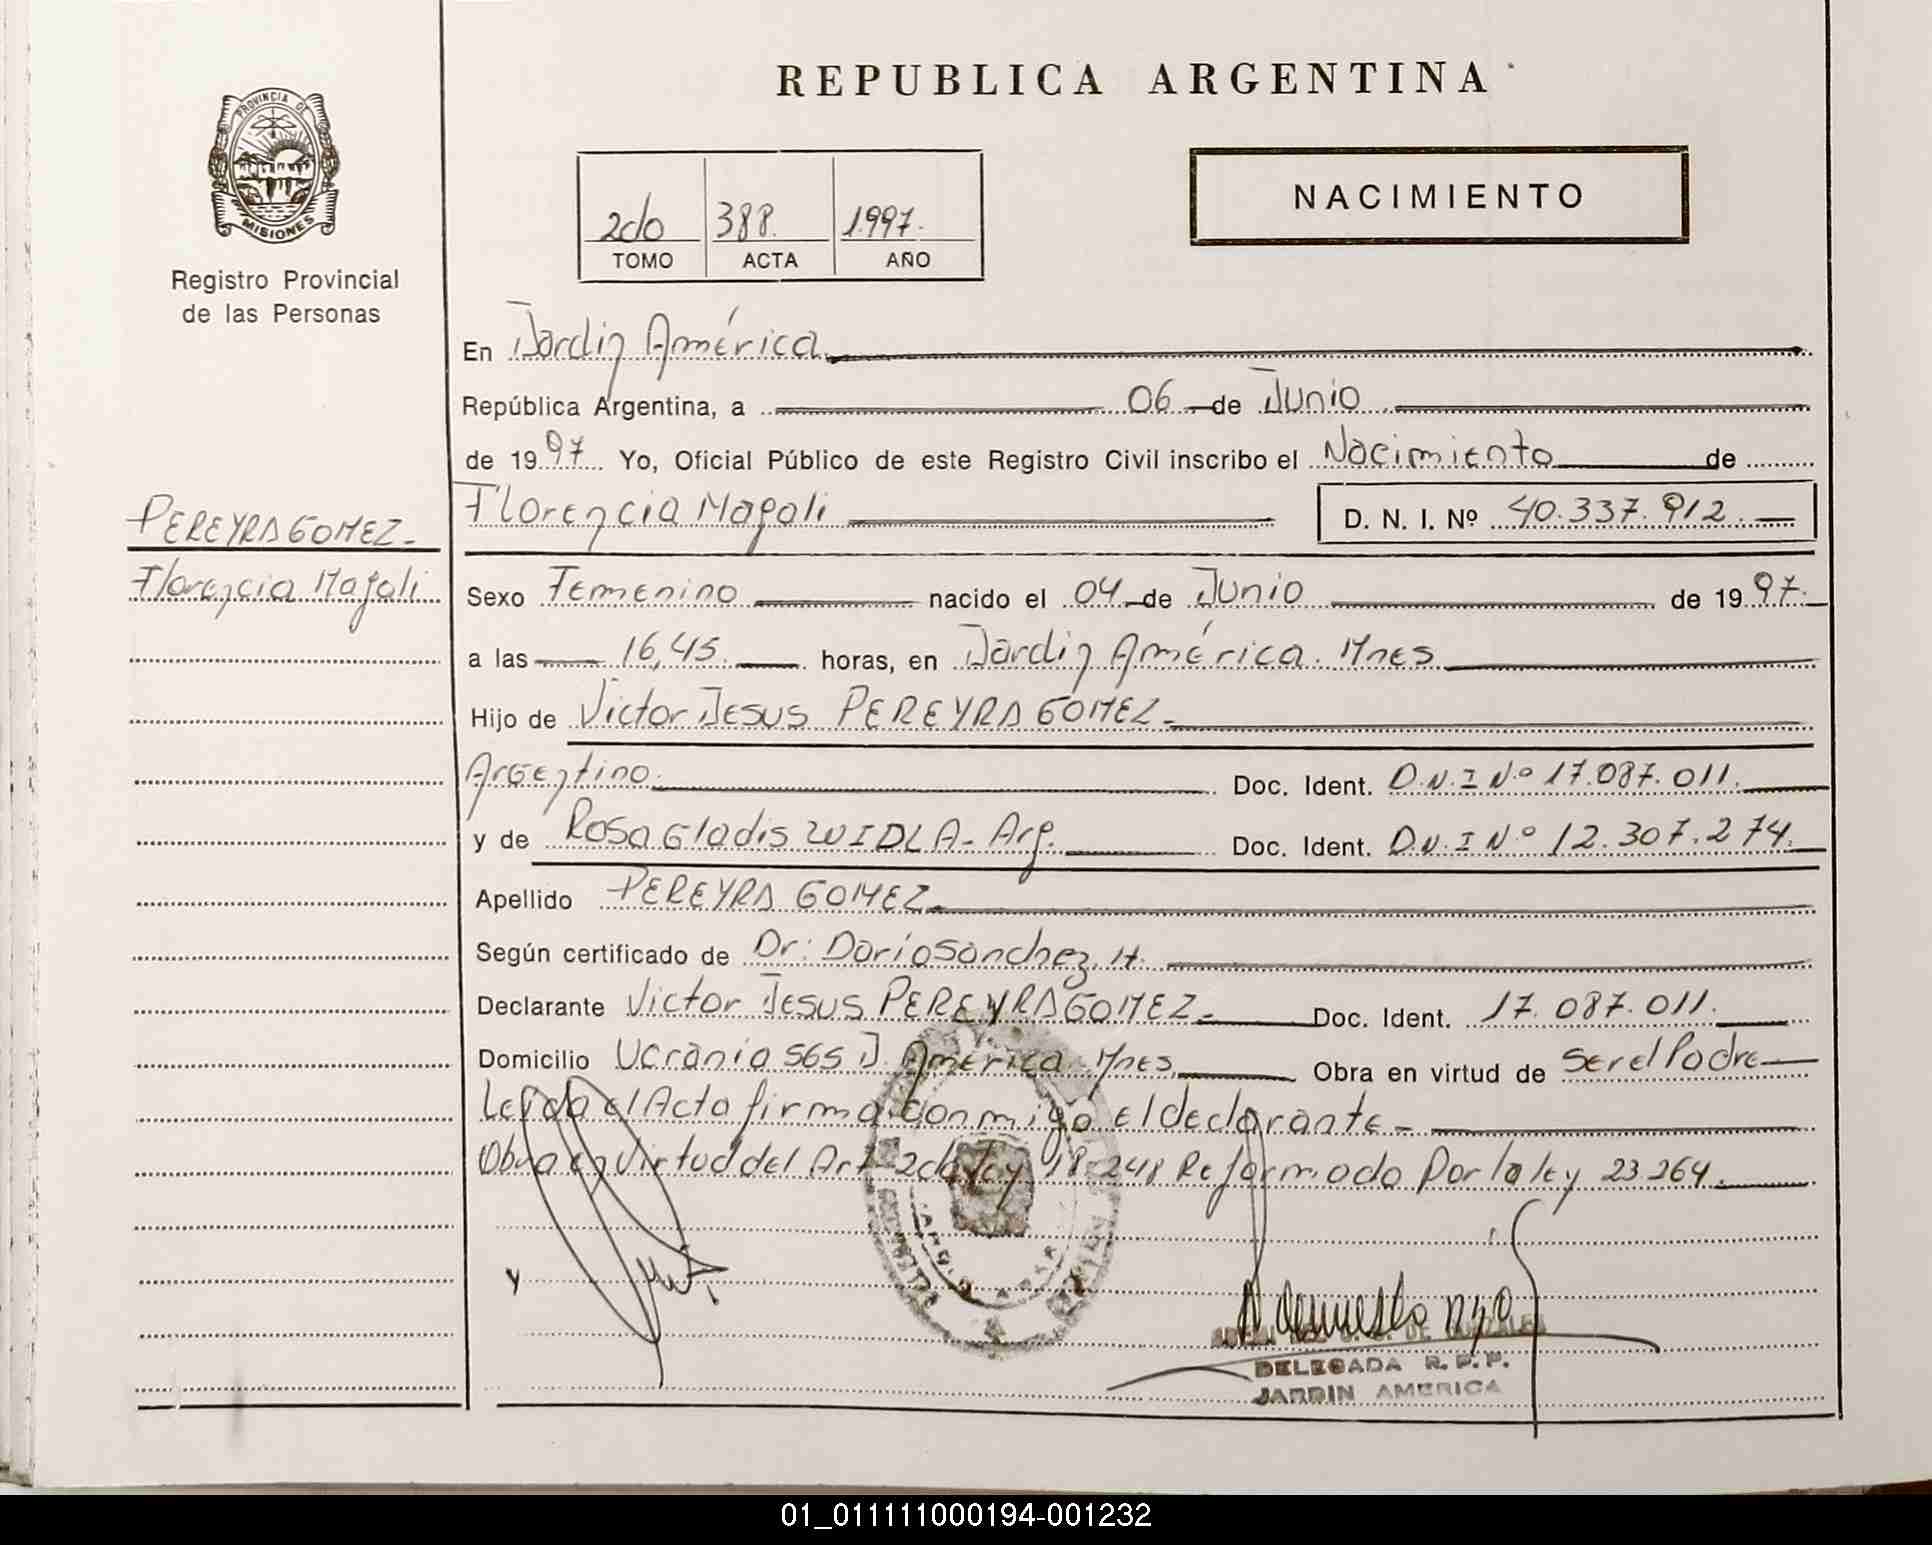 REPUBLICA ARGENTINA
PROVINCIA DE
MISIONES
Registro Provincial
de las Personas
2do 388. 1.997.
TOMO ACTA AÑO
NACIMIENTO
En Jardin América.
República Argentina, a 06 de Junio
de 1997 Yo, Oficial Público de este Registro Civil inscribo el Nacimiento de
PEREYRA GOMEZ.
Florencia Magali
Florencia Magali D. N. I. Nº 40.337.912.
Sexo Femenino nacido el 04 de Junio de 1997.
a las 16,45. horas, en Jardin América. Mnes
Hijo de Victor Jesus PEREYRA GOMEZ.
Argentino. Doc. Ident. D.N.I Nº 17.087.011.
y de Rosa Gladis WIDLA - Arg. Doc. Ident. D.N.I Nº 12.307.274.
Apellido PEREYRA GOMEZ
Según certificado de Dr: Dario Sanchez. H.
Declarante Victor Jesus PEREYRA GOMEZ. Doc. Ident. 17.087.011.
Domicilio Ucrania 565 J. América. Mnes. Obra en virtud de Ser el Padre
Leida el Acta firma conmigo el declarante.
Obra en virtud del Art 2da ley 18.248 Reformado Por la ley 23.264.
Y
DE GONZALEZ
DELEGADA R. P. P.
JARDIN AMERICA
01_011111000194-001232